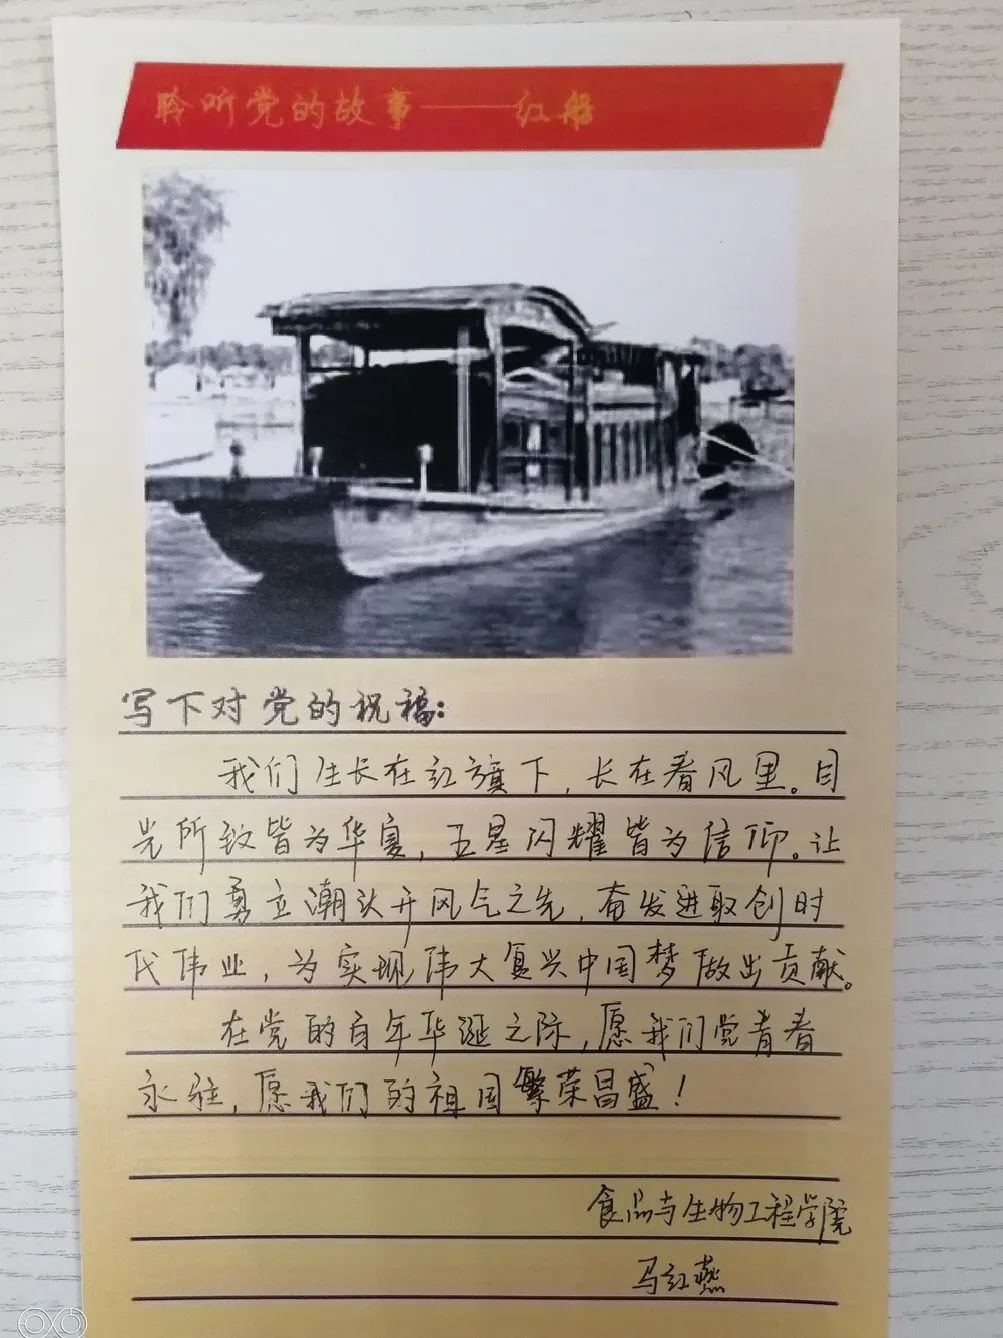 聆听党的故事——红船
写下对党的祝福:
我们生长在红旗下,长在春风里。目
光所致皆为华夏,五星闪耀皆为信仰。让
我们勇立潮头开风气之先,奋发进取创时
代伟业,为实现伟大复兴中国梦做出贡献。
在党的百年华诞之际,愿我们党青春
永驻,愿我们的祖国繁荣昌盛!
食品与生物工程学院
马红燕